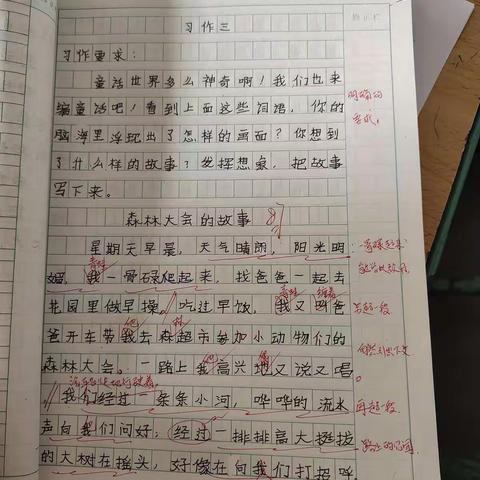 习作三
习作要求：
童话世界多么神奇啊！我们也来
编童话吧！看到上面这些词语，你的
脑海里浮现出了怎样的画面？你想到
了什么样的故事？发挥想象，把故事
写下来。
森林大会的故事 87
星期天早晨，天气晴朗，阳光明
媚，我一骨碌爬起来，找爸爸一起去
花园里做早操。吃过早饭，我又叫爸
爸开车带我去森超市参加小动物们的
森林大会。一路上我高兴地又说又唱。
我们经过一条条小河，哗哗的流水
声向我们问好；经过一排排高大挺拔
的大树在摇头，好像在向我们打招呼，
明确的
要求。
另起一段
再起一段